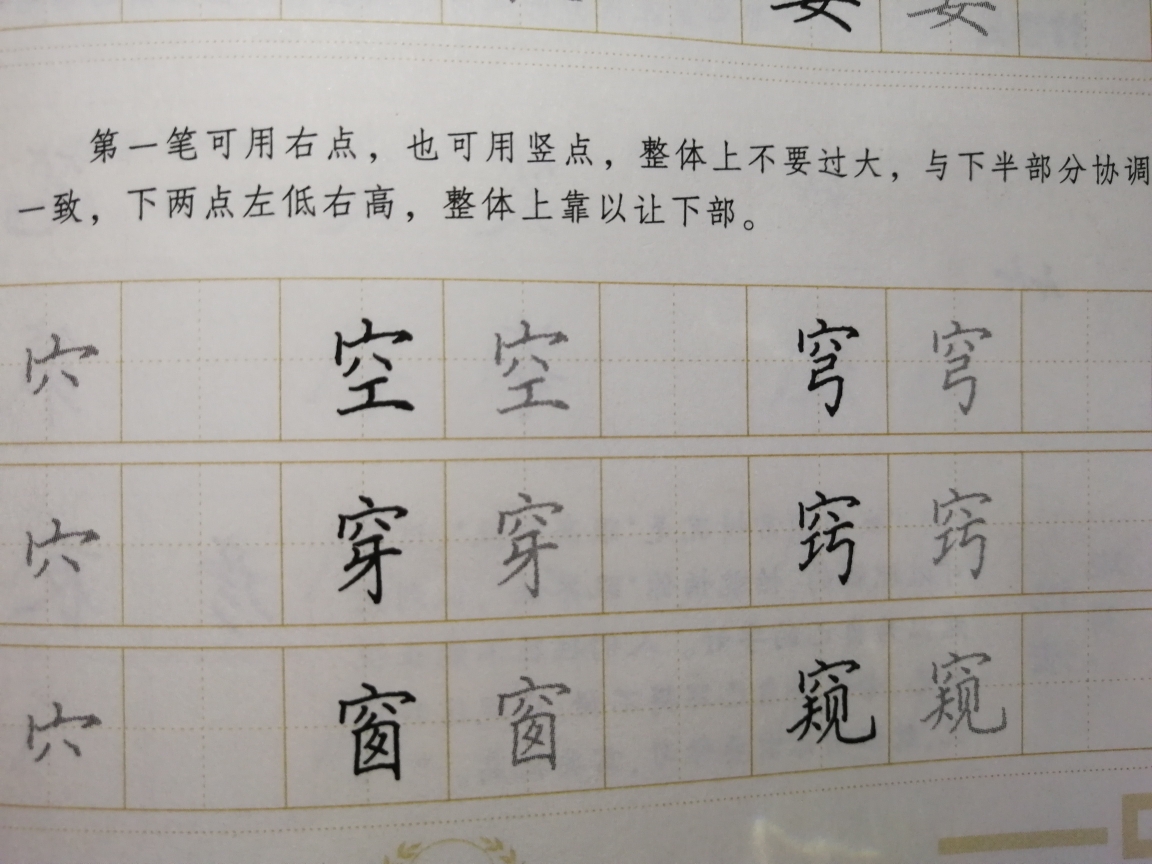 要 要
第一笔可用右点，也可用竖点，整体上不要过大，与下半部分协调
一致，下两点左低右高，整体上靠以让下部。
穴 空 空 穹 穹
穴 穿 穿 窍 窍
穴 窗 窗 窥 窥